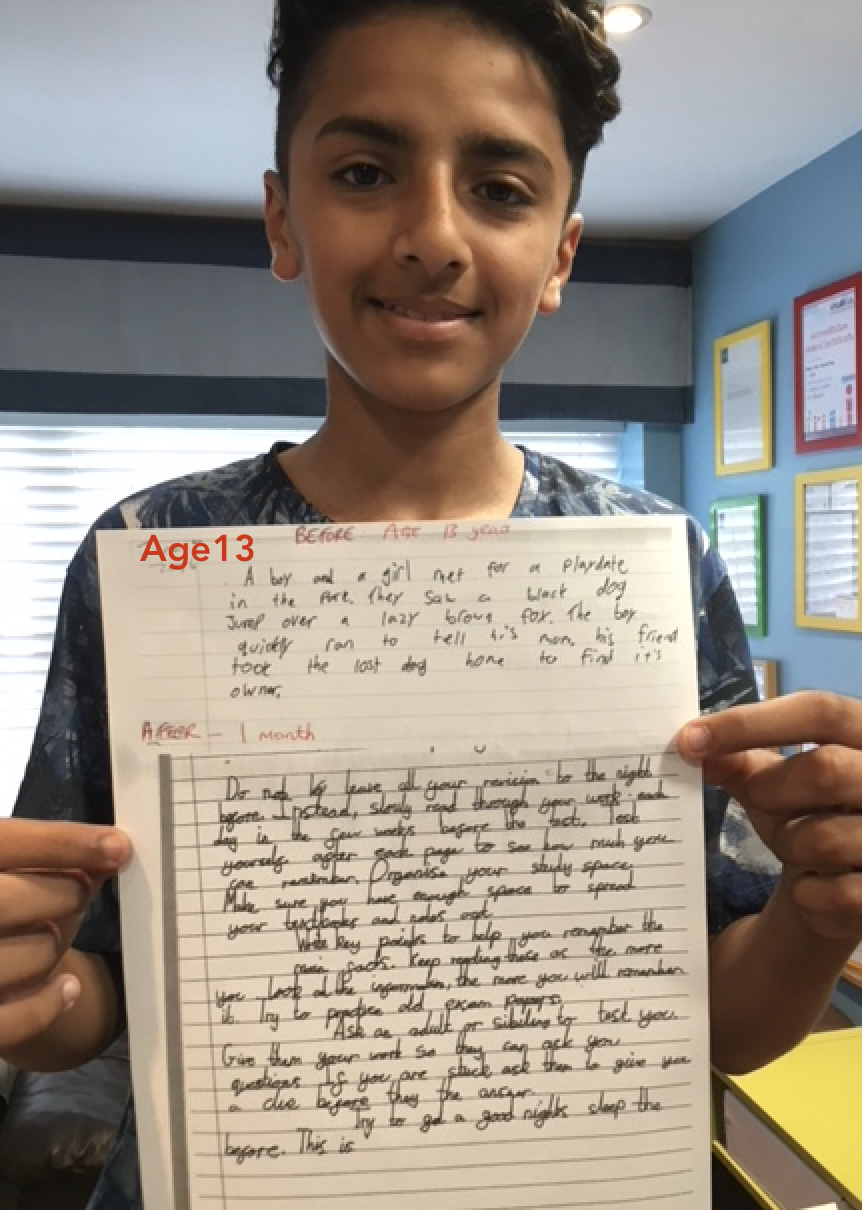 Age13
BEFORE AGE 13 years
A boy and a girl met for a playdate
in the Park. They saw a black dog
Jump over a lazy brown fox. The boy
quickly ran to tell his mom, his friend
took the lost dog home to find it's
owner.
AFTER - 1 month
Do not leave all your revision to the night
before. Instead, slowly read through your work each
day in the few weeks before the test. Test
yourself after each page to see how much you
can remember. Organise your study space.
Make sure you have enough space to spread
your textbooks and notes out.
Write key points to help you remember the
main facts. Keep reading these as the more
you look at the information, the more you will remember
it. Try to practice old exam papers.
Ask an adult or sibiling to test you.
Give them your work so they can ask you
questions If you are stuck ask them to give you
a clue before they the answer.
Try to get a good nights sleep the
before. This is